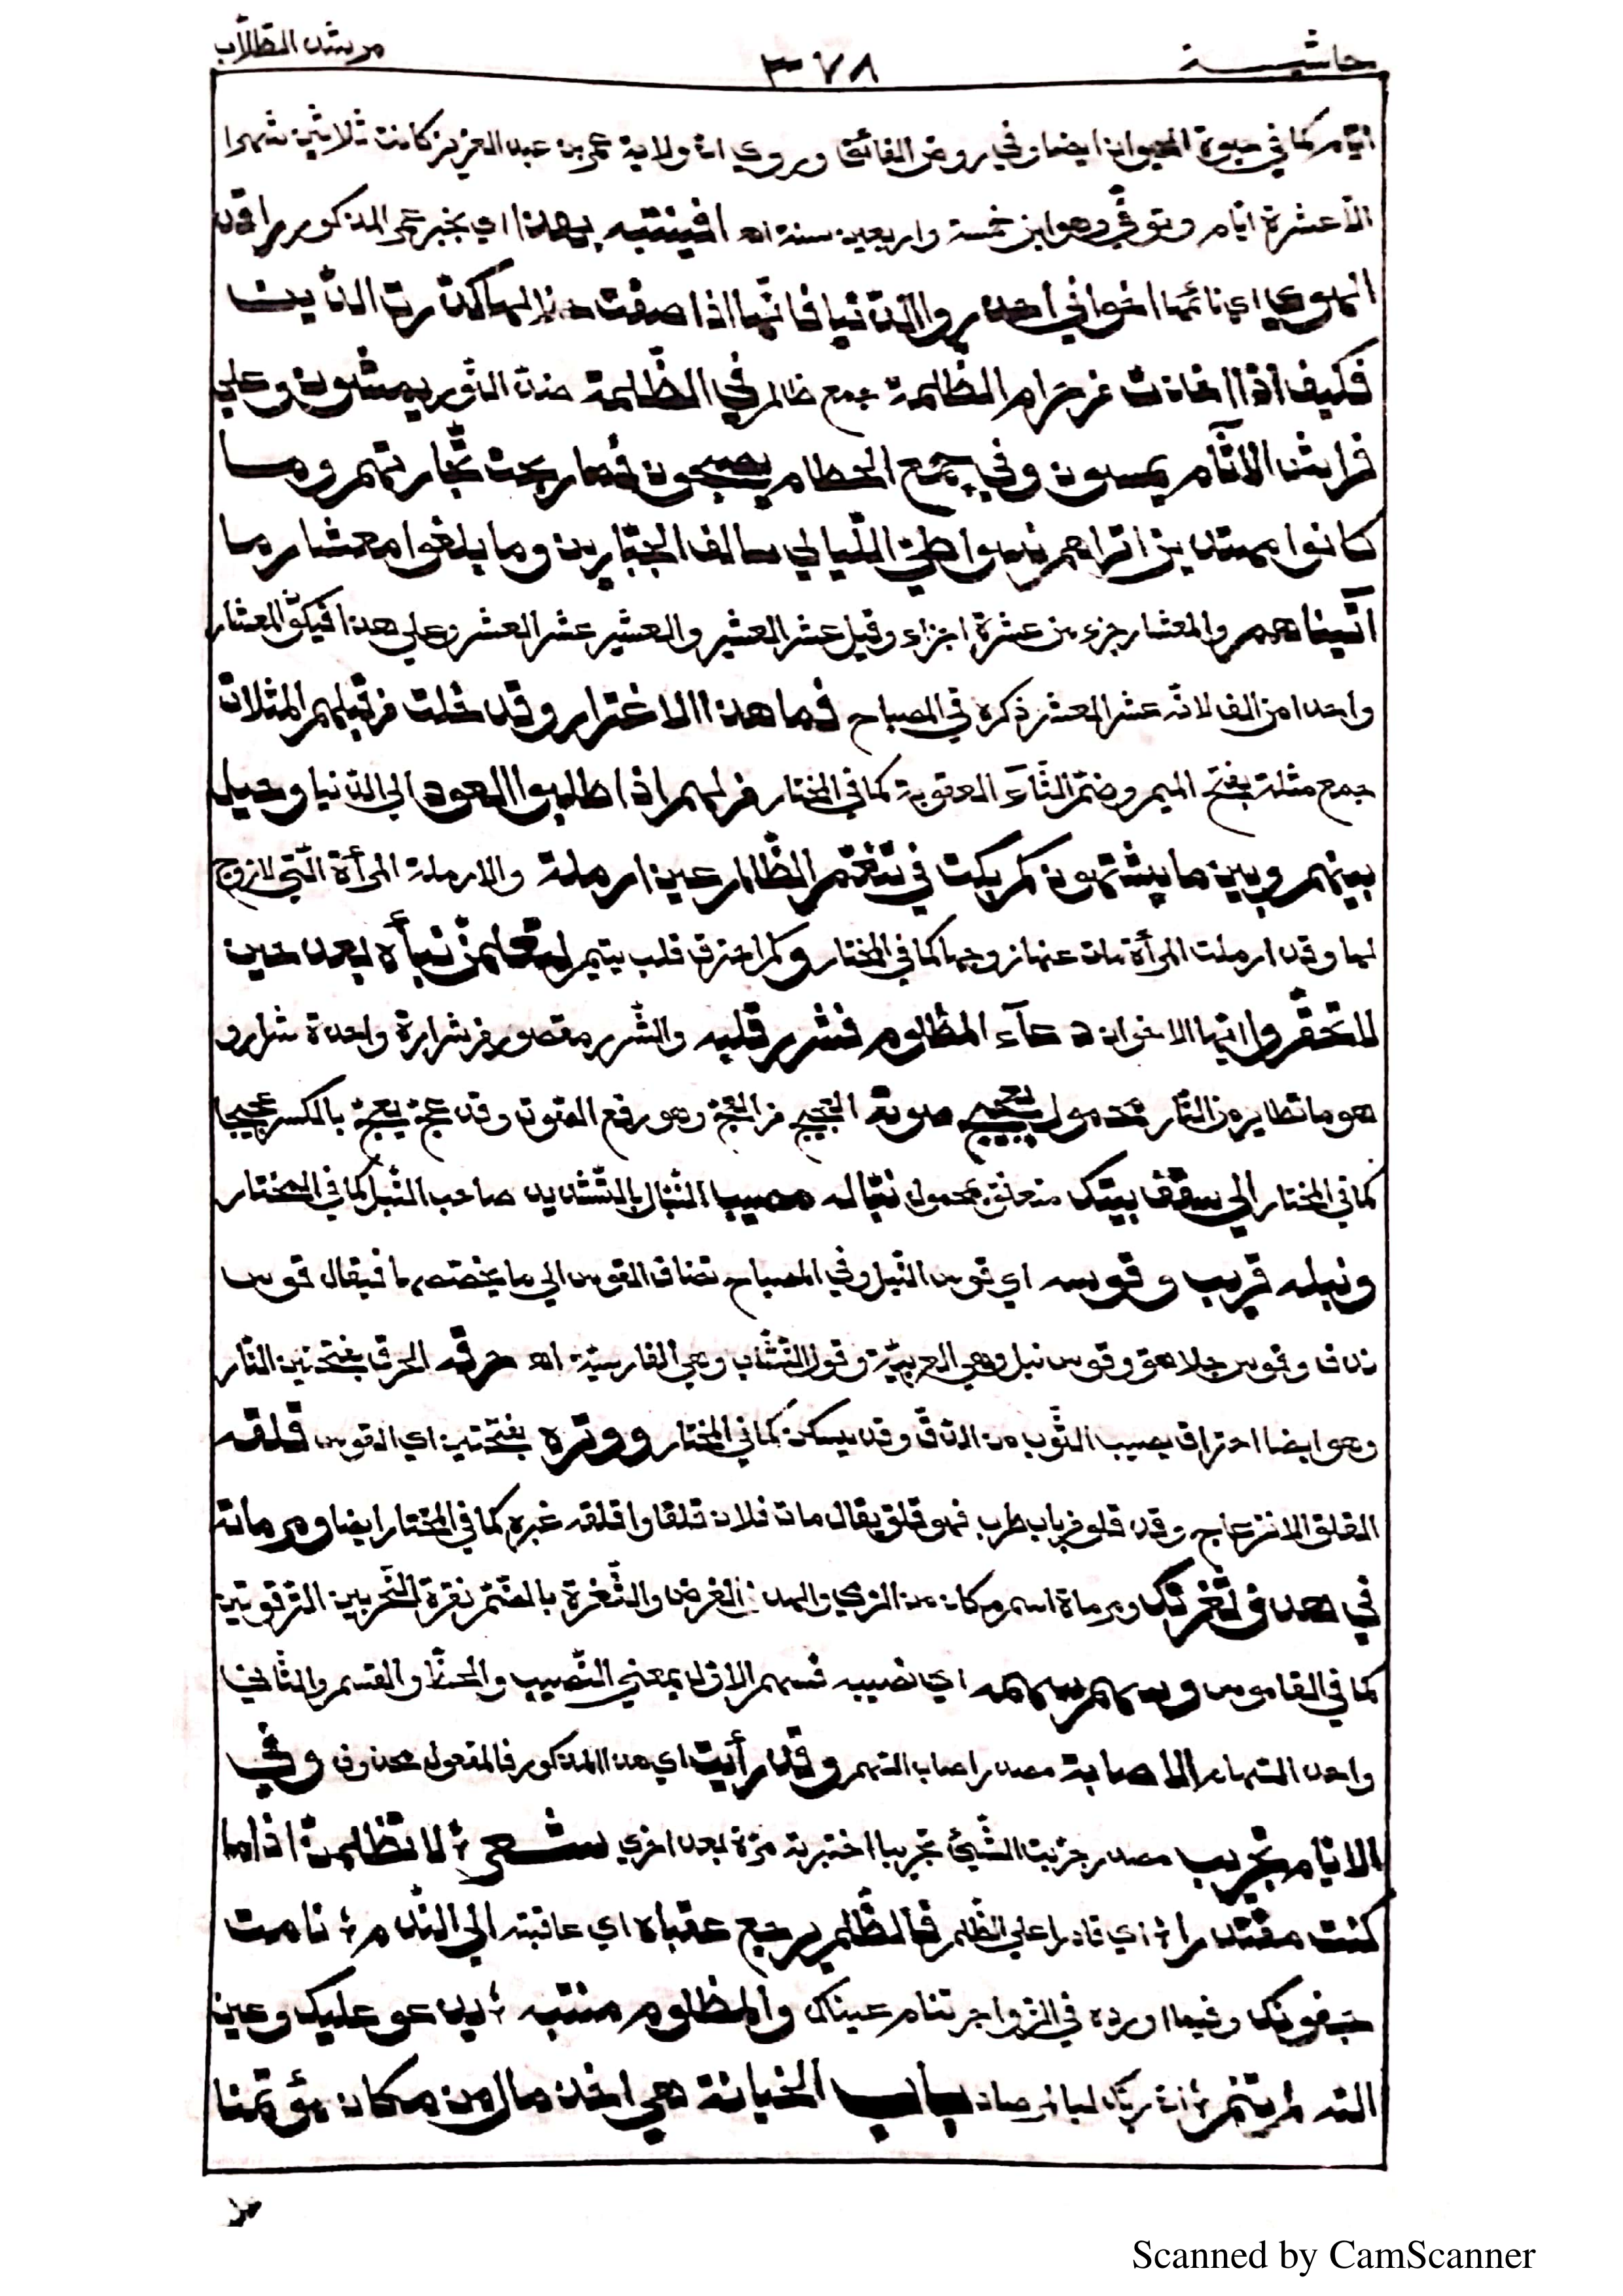 حاشية ٣٧٨ مرشد الطلّاب
ايّام كما في حيوة الحيوان ايضا وفي روض الفائق وروي انّ ولاية عمر بن عبد العزيز كانت ثلاثين شهرا
الّا عشرة ايّام وتوفّي وهو ابن خمسة واربعين سنة اه افينتبه بهذا اي بخبر عمر المذكور راقد
الهوي اي نائمها اخواني احذروا الدّنيا فانّها اذا صفت حالها كدّرت الدّين
فكيف اذا خانت من رام الظلمة جمع ظالم في الظّلمة ضدّ النّور يمشون وعلي
فراش الاثام يمسون وفي جمع الحطام يصبحون فما ربحت تجارتهم وما
كانوا مهتدين اتراهم نسوا طيّ اللّيالي سالف الجبّارين وما بلغوا معشار ما
آتيناهم والمعشار جزء من عشرة اجزاء وقيل عشر العشير والعشير عشر العشر وعلي هذا فيكون المعشار
واحدا من الف لانّه عشر المعشر ذكره في المصباح فما هذا الاغترار وقد خلت من قبلهم المثلات
جمع مثلة بفتح الميم وضمّ الثّآء العقوبة كما في المختار من لهم اذا طلبوا العود الي الدّنيا وحيل
بينهم وبين ما يشتهون كم بكت في تنعّم الظّالم عين ارملة والارملة المرأة الّتي لا زوج
لها وقد ارملت المرأة مات عنها زوجها كما في المختار وكم احترق قلب يتيم لتعلمنّ نبأه بعد حين
لا تحقّروا ايّها الاخوان دعآء المظلوم فشرر قلبه والشّرر مقصور من شرارة واحدة شرار و
هو ما تطاير من النّار محمول بعجيج صوته العجيج من العجّ وهو رفع الصّوت وقد عجّ يعجّ بالكسر عجيجا
كما في المختار الي سقف بيتك متعلّق بمحمول نبّاله مصيب النّبّال بالتّشديد صاحب النّبل كما في المختار
ونبله قريب وقوسه اي قوس النّبل وفي المصباح تضاف القوس الي ما يخصّصها فيقال قوس
ندف وقوس جلاهق وقوس نبل وهي العربيّة وقوس النّشّاب وهي الفارسيّة اه حرقه الحرق بفتحتين النّار
وهو ايضا احتراق يصيب الثّوب من الدّقّ وقد يسكن كما في المختار ووتره بفتحتين اي القوس قلقه
القلق الانزعاج وقد قلق من باب طرب فهو قلق يقال مات فلان قلقا واقلقه غيره كما في المختار ايضا ومرماته
في هدف ثغرتك ومرماة اسم مكان من الرّمي والهدف الغرض والثّغرة بالضّمّ نقرة النّحر بين التّرقوتين
كما في القاموس وسهم سهمه اي نصيبه فسهم الاوّل بمعني النّصيب والحظّ والقسم والثّاني
واحد السّهام الاصابة مصدر اصاب السّهم وقد رأيت اي هذا المذكور فالمفعول محذوف وفي
الايّام تجريب مصدر جرّبت الشّيئ تجريبا اختبرته مرّة بعد اخري شعر لا تظلمنّ اذا ما
كنت مقتدرا اي قادرا علي الظّلم فالظّلم يرجع عقباه اي عاقبته الي النّدم نامت
جفونك وفيما اورده في الزّواجر تنام عيناك والمظلوم منتبه يدعو عليك وعين
اللّه لم تنم انّ ربّك لبالمرصاد باب الخيانة هي اخذ مال من مكان يؤتمنا
Scanned by CamScanner